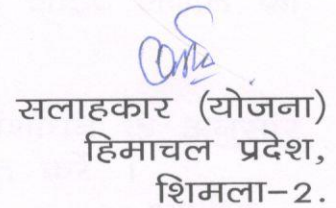 सलाहकार (योजना)
हिमाचल प्रदेश,
शिमला-2.